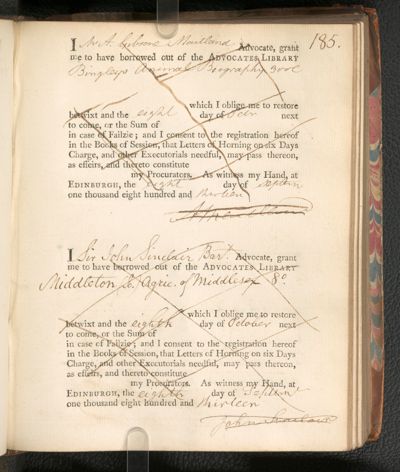 185.
I Mr A. Gibsone Maitland Advocate, grant
me to have borrowed out of the ADVOCATES LIBRARY
Bingleys Animal Biography 3 vol
which I oblige me to restore
betwixt and the eight day of Octr next
to come, or the Sum of
in case of Failzie; and I consent to the registration hereof
in the Books of Session, that Letters of Horning on six Days
Charge, and other Executorials needful, may pass thereon,
as effeirs, and thereto constitute
my Procurators. As witness my Hand, at
EDINBURGH, the eight day of Septem
one thousand eight hundred and thirteen
I Sir John Sinclair Bart. Advocate, grant
me to have borrowed out of the ADVOCATES LIBRARY
Middleton Agric. of Middlesex 8o.
which I oblige me to restore
betwixt and the eighth day of October next
to come, or the Sum of
in case of Failzie; and I consent to the registration hereof
in the Books of Session, that Letters of Horning on six Days
Charge, and other Executorials needful, may pass thereon,
as effeirs, and thereto constitute
my Procurators. As witness my Hand, at
EDINBURGH, the eighth day of Septemr
one thousand eight hundred and thirteen
John Sinclair